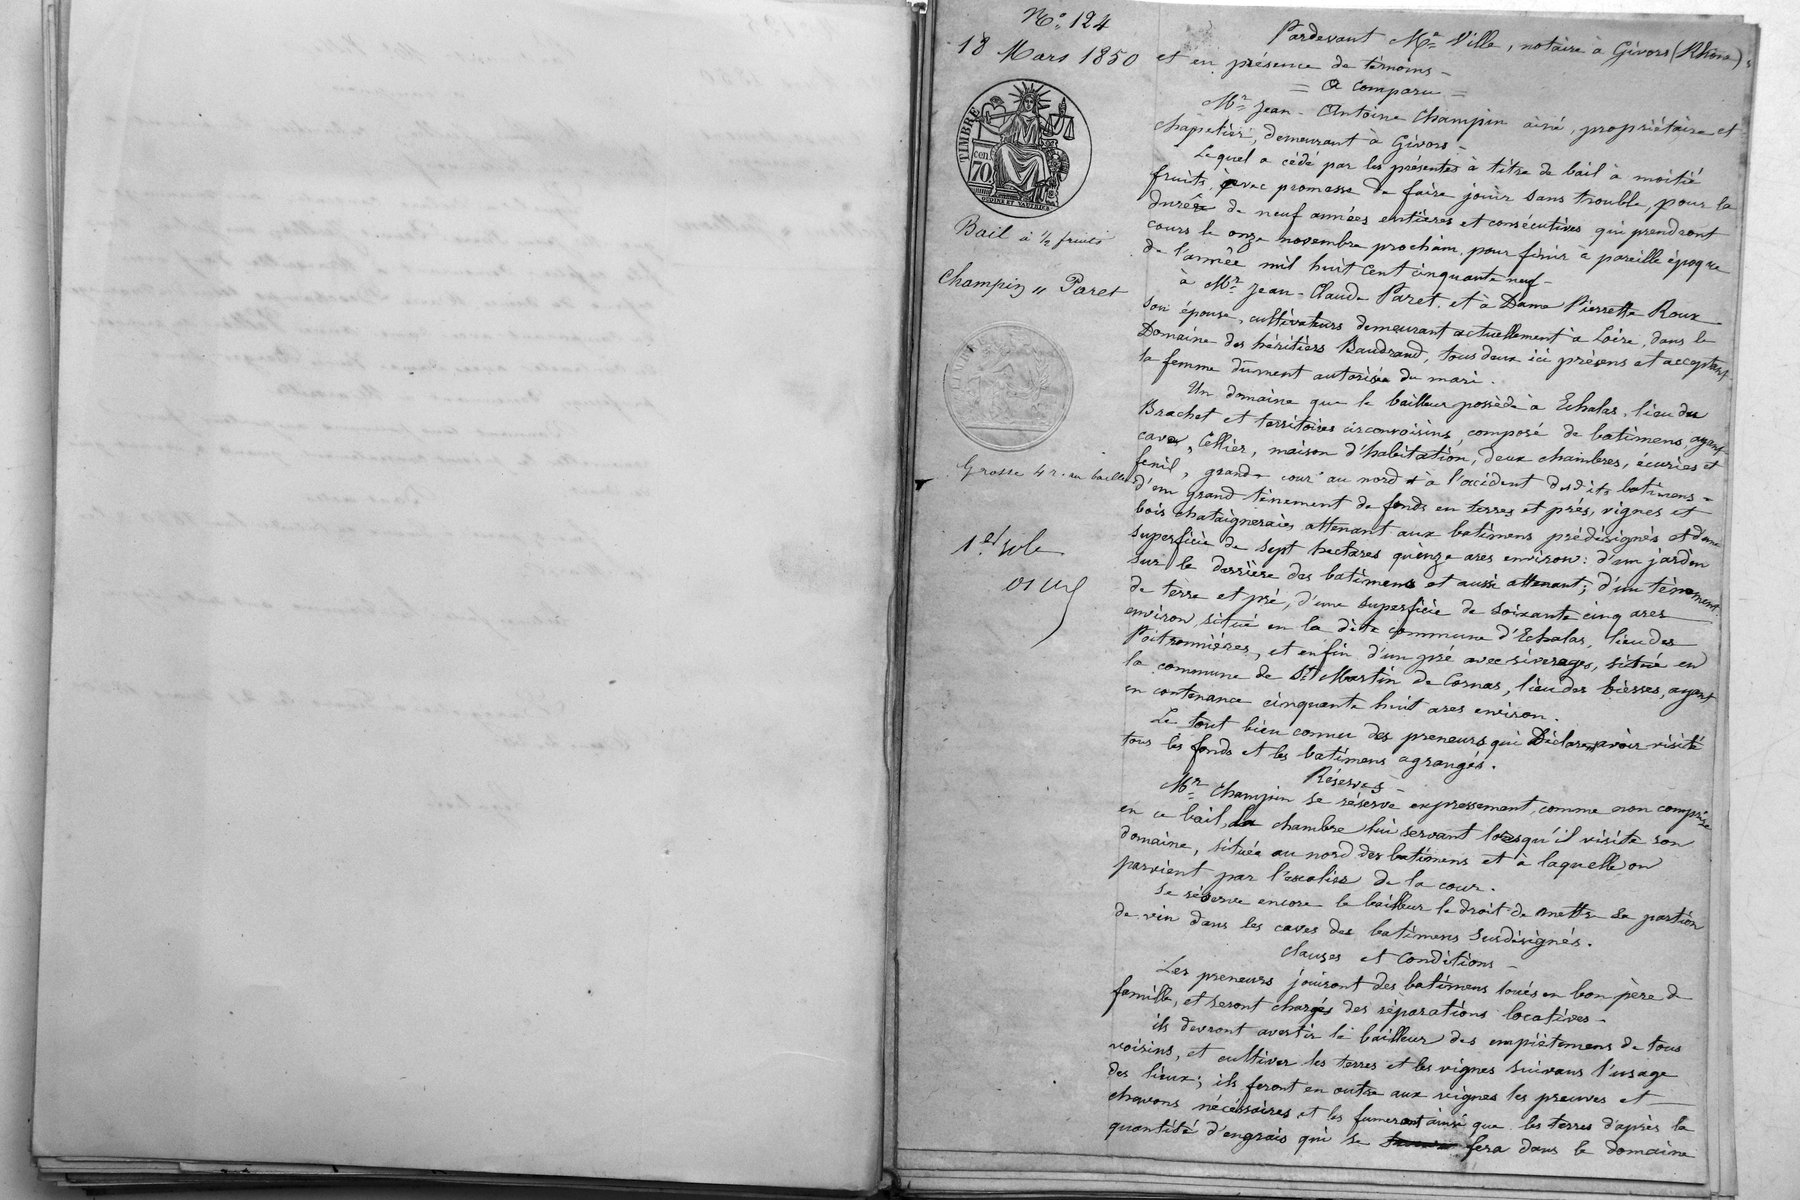 N.o 124
13 Mars 1850
TIMBRE
cen.
70
OUDINE ET VAUTHIER
Bail à 1/2 fruits
Champin " Paret
Grosse 4 r. au bailleur
1er role
Pardevant Me Ville, notaire à Givors (Rhône)
et en présence de témoins -
= a comparu =
Mr Jean-Antoine Champin ainé, propriétaire et
chapelier, demeurant à Givors -
Lequel a cédé par les présentes à titre de bail à moitié
fruits, avec promesse de faire jouir sans trouble, pour la
durée de neuf années entières et consécutives qui prendront
cours le onze novembre prochain, pour finir à pareille époque
de l'année mil huit cent cinquante neuf -
à Mr Jean-Claude Paret et à Dame Pierrette Roux
son épouse, cultivateurs demeurant actuellement à Loire, dans le
Domaine des héritiers Baudrand, tous deux ici présens et acceptant
la femme dûment autorisée du mari.
Un domaine que le bailleur possède à Echalas, lieu du
Brachet et territoires circonvoisins, composé de batimens, ayant
cave, Cellier, maison d'habitation, deux chambres, écuries et
fenil, grande cour au nord et à l'occident desdits batimens -
d'un grand tènement de fonds en terres et prés, vignes et
bois chataigneraies attenant aux batimens prédésignés et d'une
superficie de sept hectares quinze ares environ: d'un jardin
sur le derrière des batimens et aussi attenant; d'un tènement
de terre et pré, d'une superficie de soixante cinq ares
environ, situé en la dite commune d'Echalas, lieu des
Poitronnières, et enfin d'un pré avec riverages, situé en
la commune de St Martin de Cornas, lieu des bièsses, ayant
en contenance cinquante huit ares environ.
Le tout bien connu des preneurs qui Déclarent avoir visité
tous les fonds et les batimens agrangés.
Réserves -
Mr Champin se réserve expressement, comme non comprise
en ce bail, la chambre lui servant lorsqu'il visite son
domaine, située au nord des batimens et à laquelle on
parvient par l'escalier de la cour.
Se réserve encore le bailleur le droit de mettre sa portion
de vin dans les caves des batimens susdésignés.
Clauses et Conditions -
Les preneurs jouiront des batimens loués en bon père de
famille, et seront chargés des réparations locatives -
ils devront avertir le bailleur des empiètemens de tous
voisins, et cultiver les terres et les vignes suivans l'usage
des lieux; ils feront en outre aux vignes les preuves et
chavons nécéssaires et les fumeront ainsi que les terres d'après la
quantité d'engrais qui se fera dans le domaine